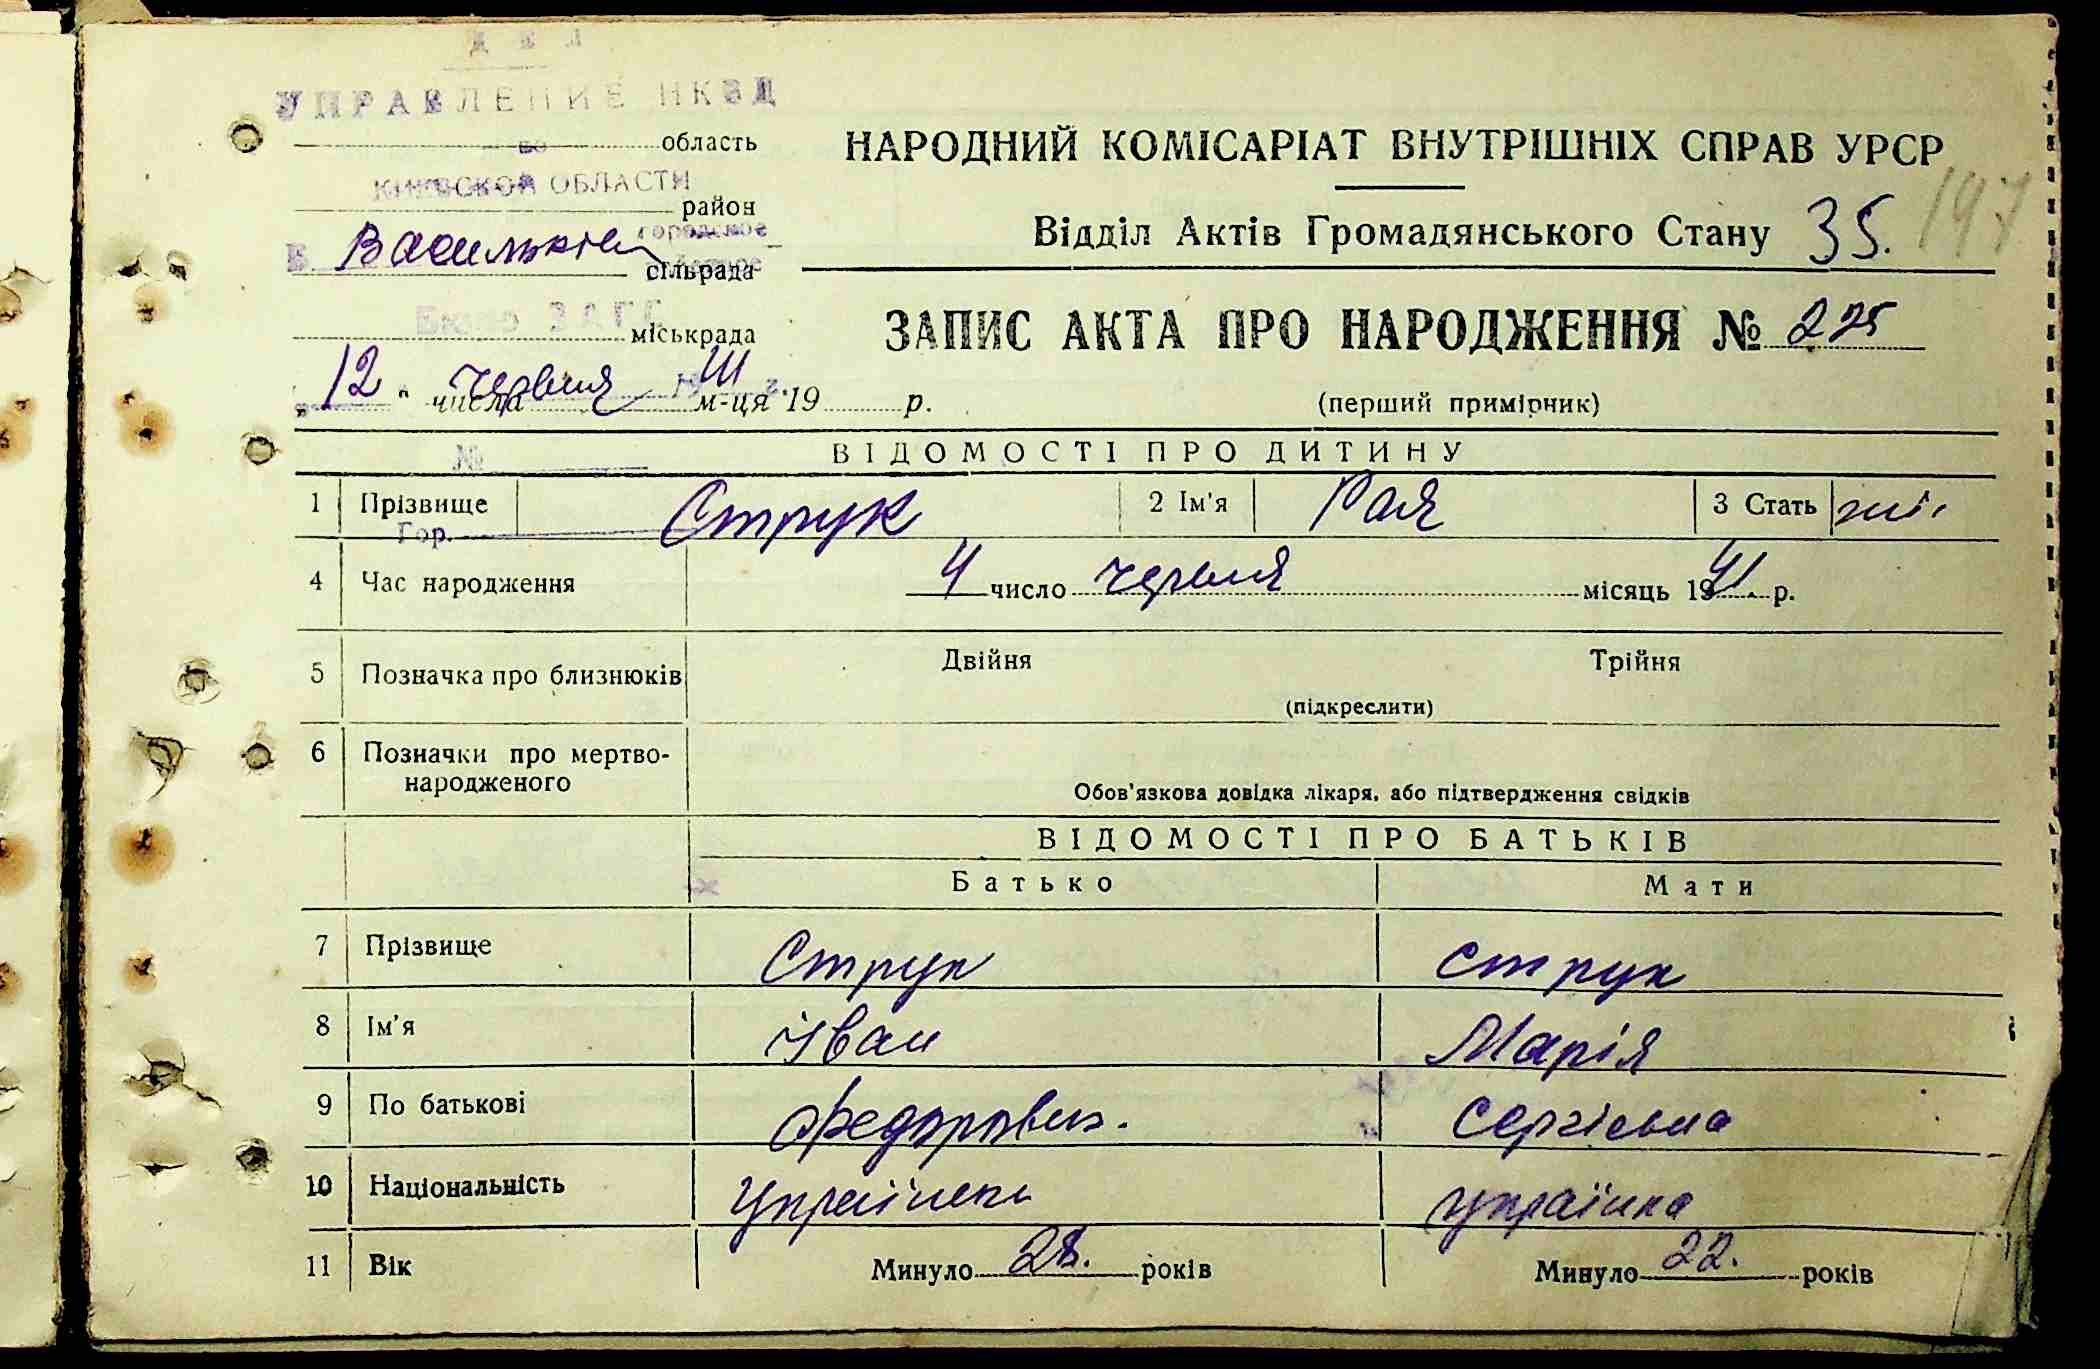 УПРАВЛЕНИЕ НКВД
по область
КИЕВСКОЙ ОБЛАСТИ
район
НАРОДНИЙ КОМІСАРІАТ ВНУТРІШНІХ СПРАВ УРСР
Відділ Актів Громадянського Стану 35.
городское
сільрада
Бюро ЗАГС
міськрада
ЗАПИС АКТА ПРО НАРОДЖЕННЯ № 225
„12" числа червня м-ця 19 р.
(перший примірник)
№
ВІДОМОСТІ ПРО ДИТИНУ
1 Прізвище Струк 2 Ім'я Рая 3 Стать жін.
Гор.
4 Час народження 4 число червня місяць 1941 р.
5 Позначка про близнюків Двійня Трійня
(підкреслити)
6 Позначки про мертво-
народженого
Обов'язкова довідка лікаря, або підтвердження свідків
ВІДОМОСТІ ПРО БАТЬКІВ
Батько Мати
7 Прізвище Струк Струк
8 Ім'я Іван Марія
9 По батькові Федорович. Сергієвна
10 Національність Українець Українка
11 Вік Минуло 28. років Минуло 22. років